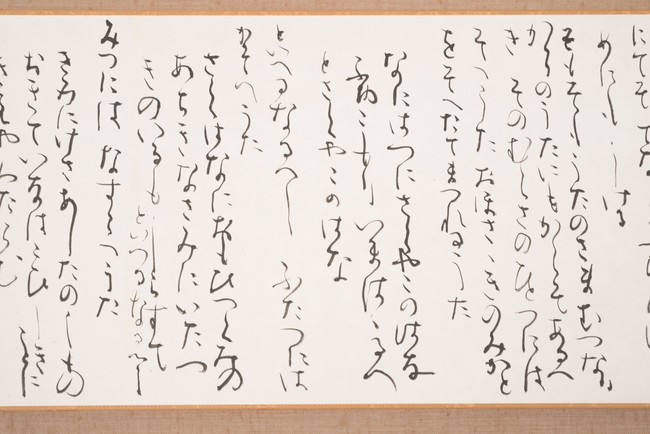 めにもしける
そもそもうたのさまむつなり
からのうたにもかくそあるへ
き そのむくさのひとつには
そへうた おほささきのみかと
をそへたてまつれるうた
なにはつにさくやこのはな
ふゆこもりいまははるへ
とさくやこのはな
といへるなるへし ふたつには
かそへうた
さくはなにおもひつくみの
あちきなさみにいたつ
きのいるもしらすて
といへるなるへし
みつには なすらへうた
きみにけさあしたのしもの
おきていなはこひしきこと
きえやわたらむ